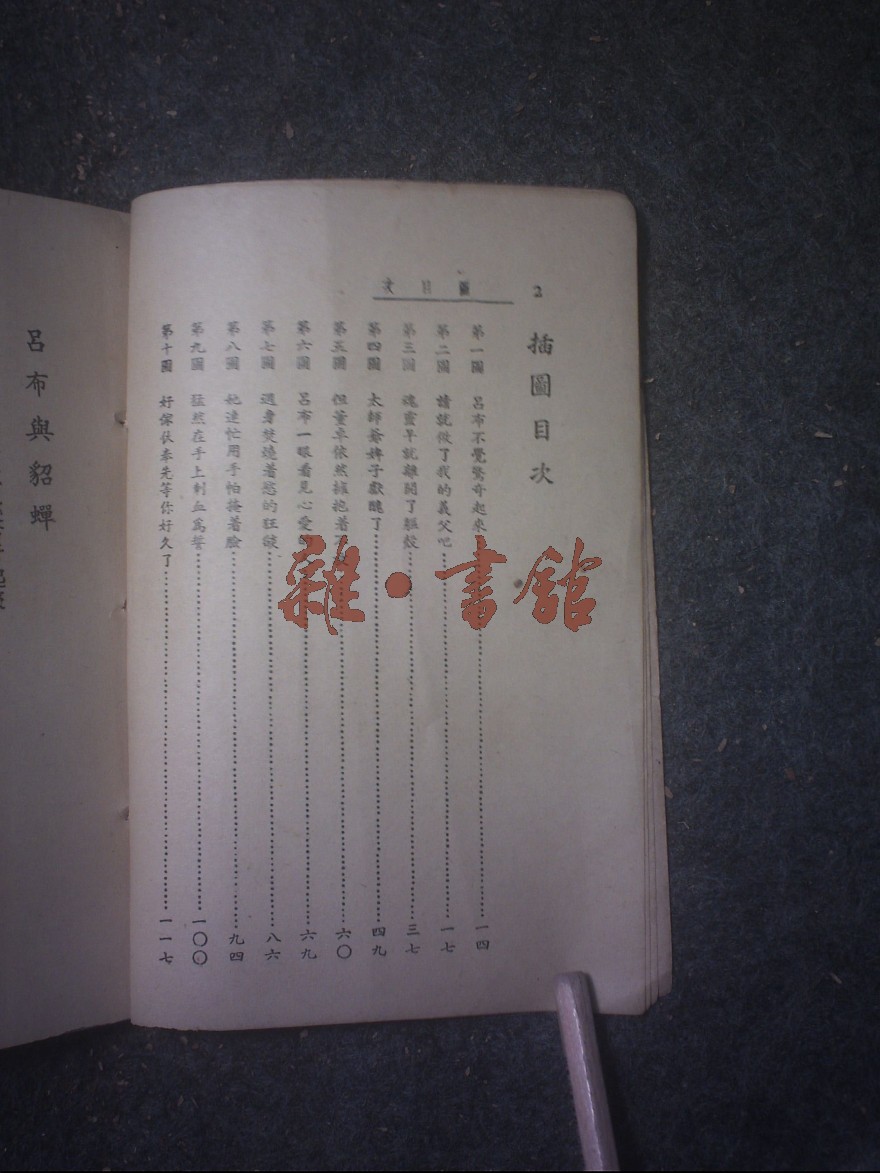 2
圖目次
插圖目次
第一圖 呂布不覺驚奇起來……一四
第二圖 請就做了我的義父吧……一七
第三圖 魂靈早就離開了軀殼……三七
第四圖 太師爺婢子獻醜了……四九
第五圖 但董卓依然擁抱着……六〇
第六圖 呂布一眼看見心愛……六九
第七圖 週身焚燒着慾的狂燄……八六
第八圖 她連忙用手帕掩着臉……九四
第九圖 猛然在手上刺血為誓……一〇〇
第十圖 好傢伙奉先等你好久了……一一七
呂布與貂蟬
雜·書館